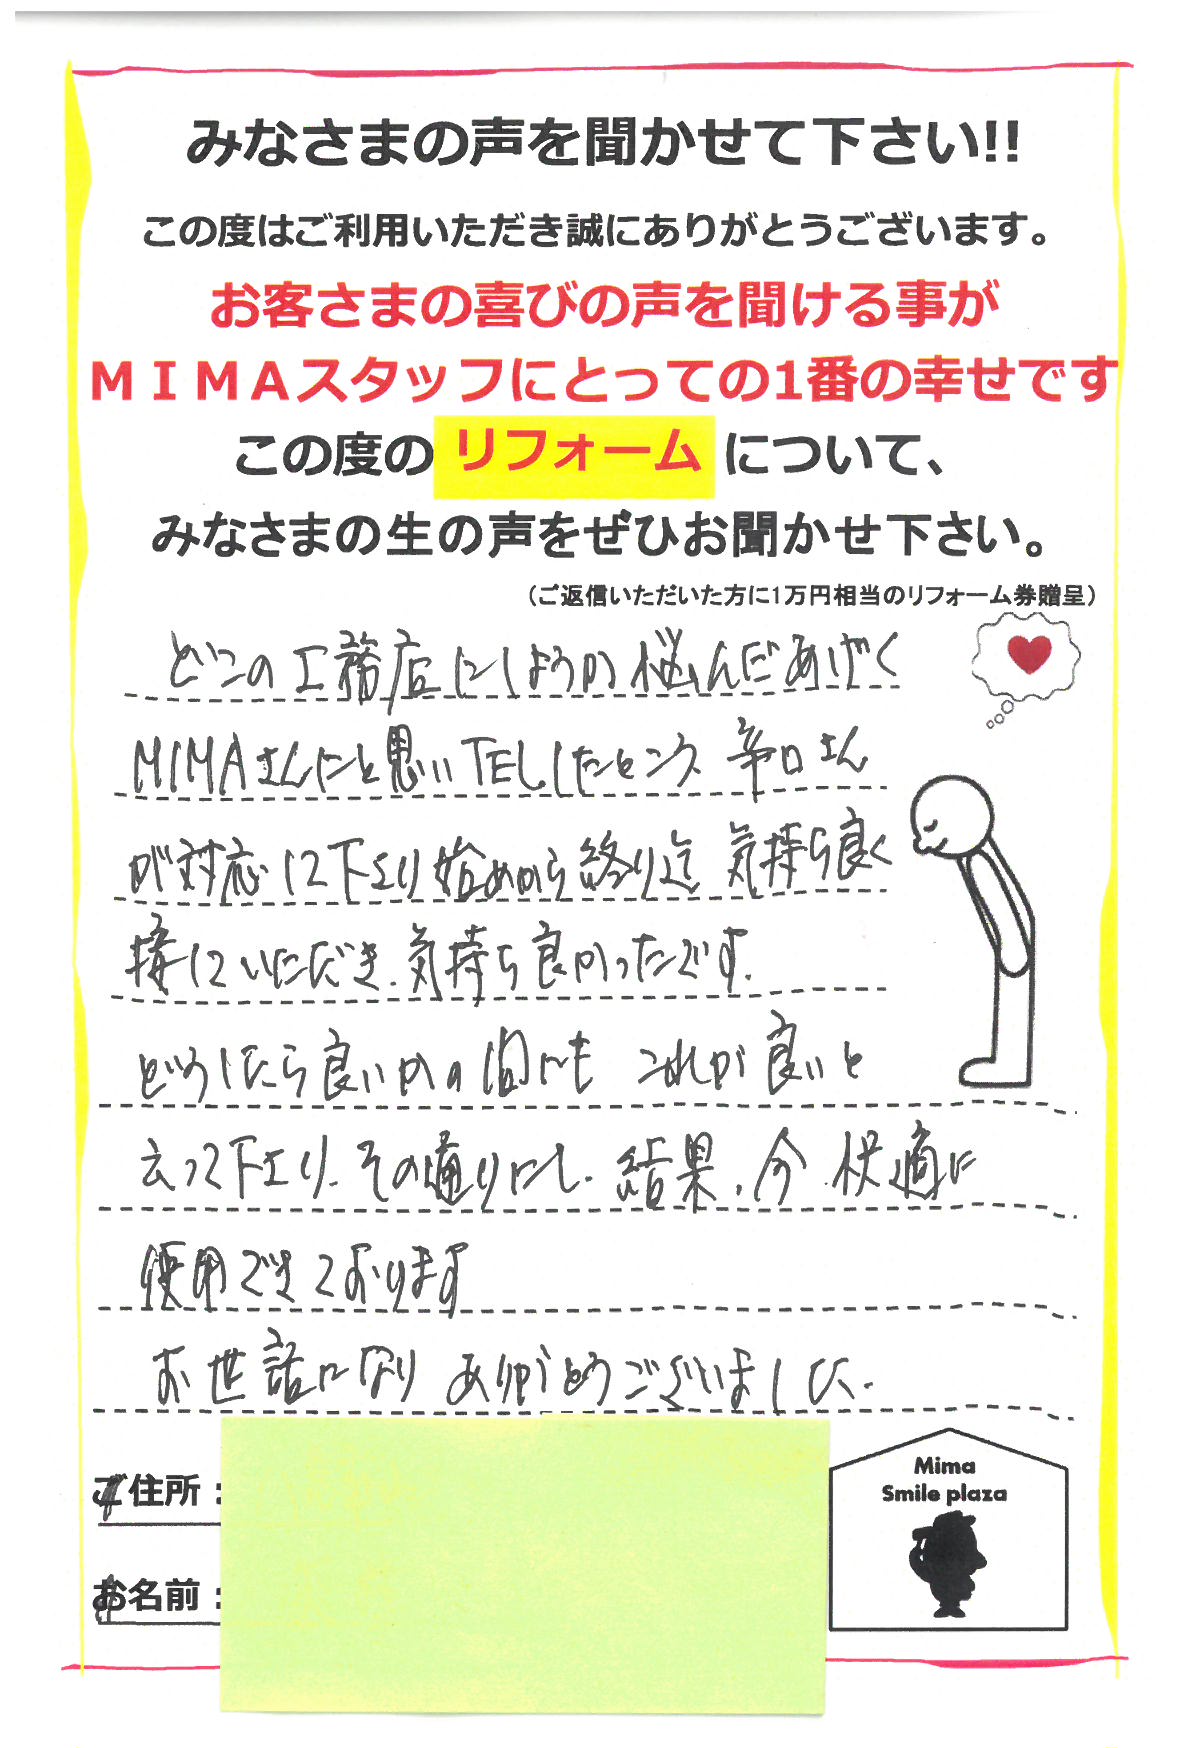 みなさまの声を聞かせて下さい!!
この度はご利用いただき誠にありがとうございます。
お客さまの喜びの声を聞ける事が
ＭＩＭＡスタッフにとっての1番の幸せです
この度の リフォーム について、
みなさまの生の声をぜひお聞かせ下さい。
（ご返信いただいた方に1万円相当のリフォーム券贈呈）
どこの工務店にしようか悩んだあげく
MIMAさんにと思いTELしたところ 辛口さん
が対応して下さり始めから終り迄 気持ち良く
接していただき.気持ち良かったです.
どうしたら良いかの問にも これが良いと
云って下さり.その通りにし.結果.今.快適に
使用できております
お世話になり ありがとうございました.
Mima
Smile plaza
ご住所：
お名前：